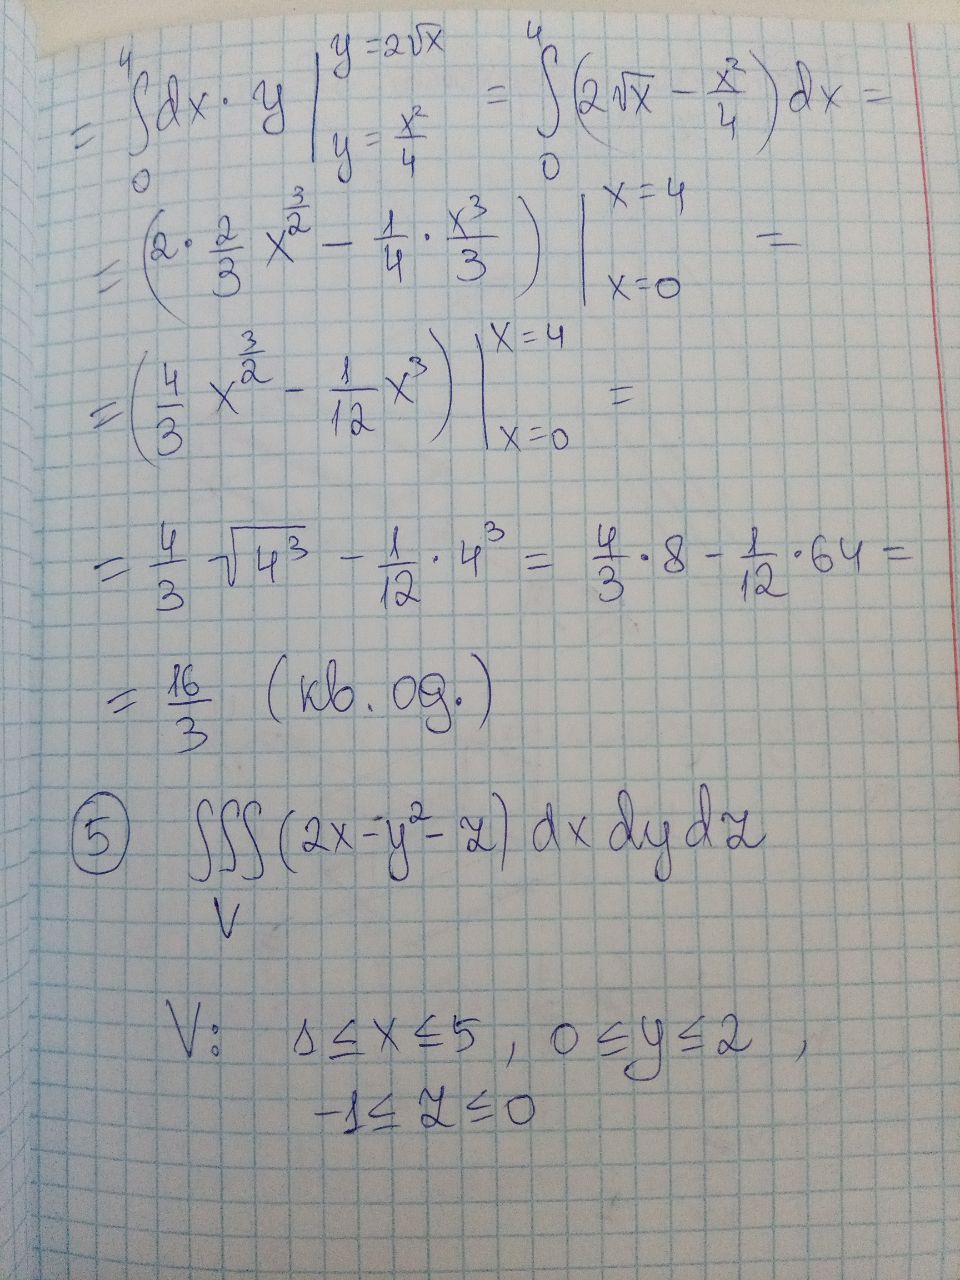 = ∫₀⁴ dx · y |_{y = x²/4}^{y = 2√x} = ∫₀⁴ (2√x − x²/4) dx =
= (2 · 2/3 x^{3/2} − 1/4 · x³/3) |_{x=0}^{x=4} =
= (4/3 x^{3/2} − 1/12 x³) |_{x=0}^{x=4} =
= 4/3 √4³ − 1/12 · 4³ = 4/3 · 8 − 1/12 · 64 =
= 16/3 (кв. од.)
⑤ ∭_V (2x − y² − z) dx dy dz
V: 1 ≤ x ≤ 5 , 0 ≤ y ≤ 2 ,
−1 ≤ z ≤ 0